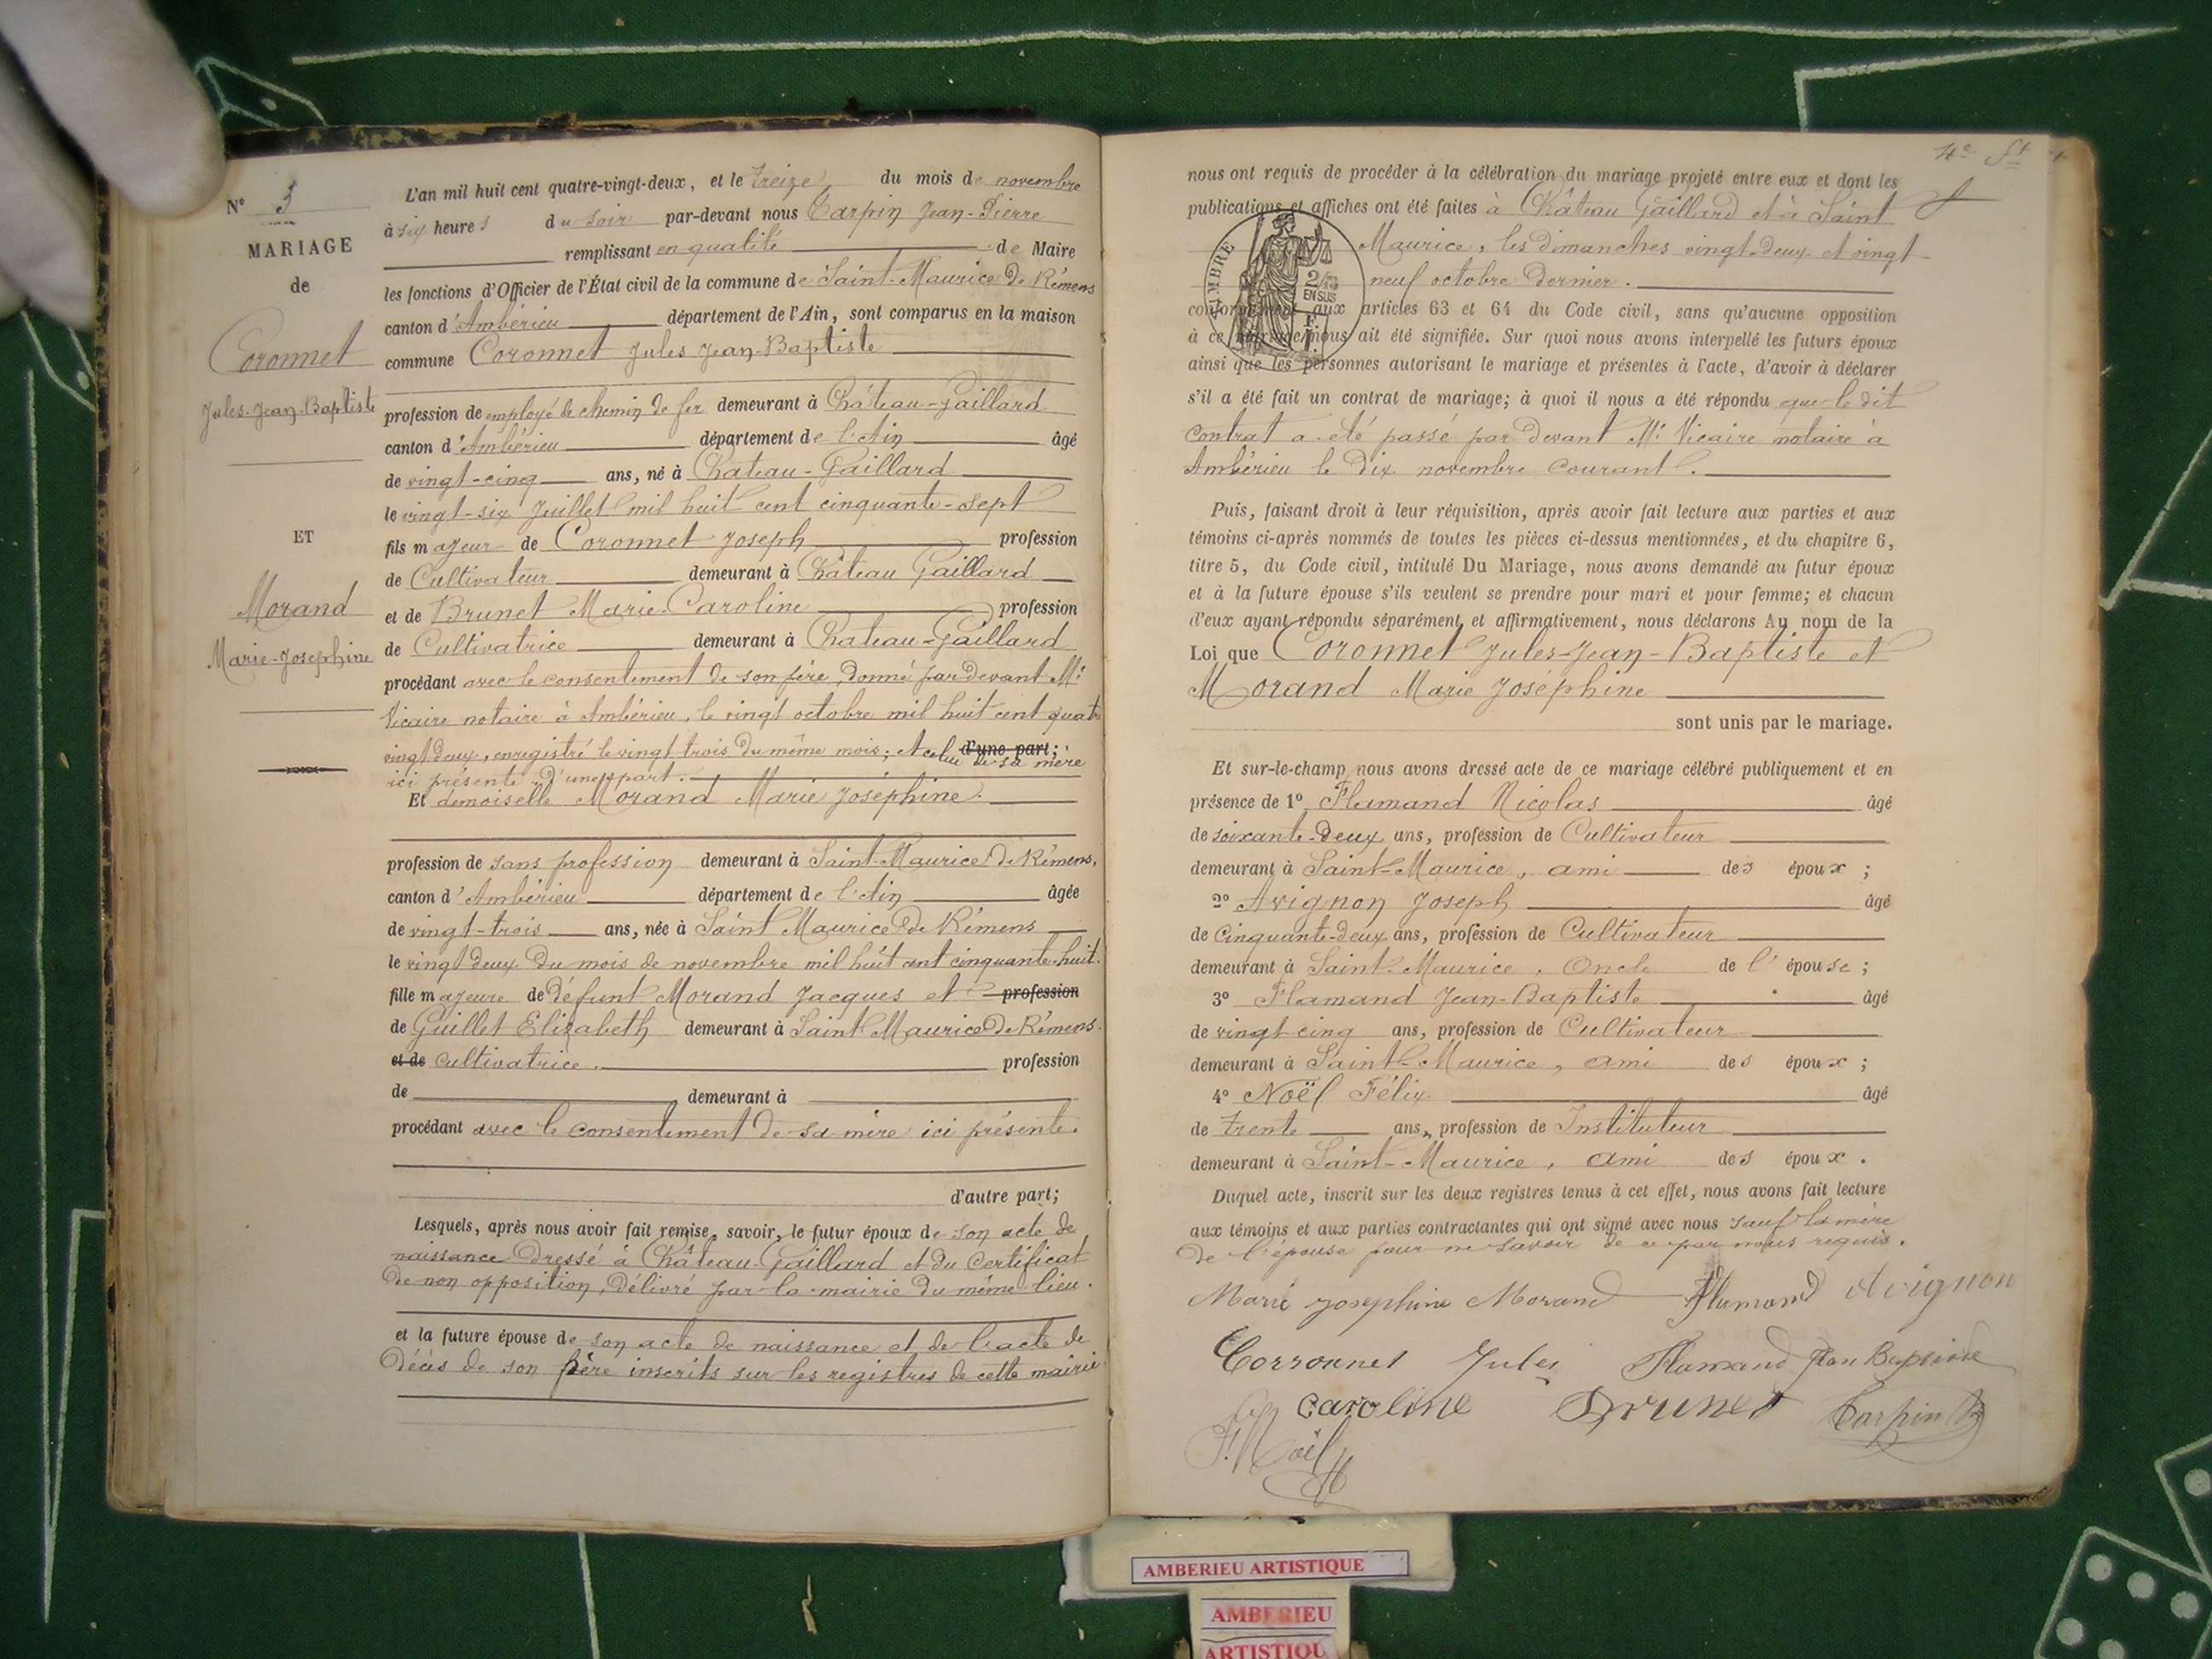 N° 3
MARIAGE
de
Coronnet
Jules-Jean-Baptiste
ET
Morand
Marie-Josephine
L'an mil huit cent quatre-vingt-deux, et le treize du mois de novembre
à six heures du soir par-devant nous Carpin Jean-Pierre
remplissant en qualité de Maire
les fonctions d'Officier de l'État civil de la commune de Saint-Maurice de Rémens
canton d'Ambérieu département de l'Ain, sont comparus en la maison
commune Coronnet Jules Jean-Baptiste
profession de employé de chemin de fer demeurant à Château-Gaillard
canton d'Ambérieu département de l'Ain âgé
de vingt-cinq ans, né à Chateau-Gaillard
le vingt-six Juillet mil huit cent cinquante-sept
fils majeur de Coronnet Joseph profession
de Cultivateur demeurant à Château Gaillard
et de Brunet Marie-Caroline profession
de Cultivatrice demeurant à Chateau-Gaillard
procédant avec le consentement de son père, donné par devant Me
Vicaire notaire à Ambérieu, le vingt octobre mil huit cent quatre
vingt deux, enregistré le vingt trois du même mois; et celui de sa mère d'une part;
ici présente d'une part.
Et demoiselle Morand Marie Joséphine.
profession de sans profession demeurant à Saint-Maurice de Rémens,
canton d'Ambérieu département de l'Ain âgée
de vingt-trois ans, née à Saint Maurice de Rémens
le vingt deux du mois de novembre mil huit cent cinquante-huit.
fille majeure de défunt Morand Jacques et profession
de Guillet Elizabeth demeurant à Saint Maurice de Rémens.
et de cultivatrice. profession
de demeurant à
procédant avec le consentement de sa mère ici présente.
d'autre part;
Lesquels, après nous avoir fait remise, savoir, le futur époux de son acte de
naissance dressé à Château-Gaillard et du Certificat
de non opposition, délivré par la mairie du même lieu.
et la future épouse de son acte de naissance et de l'acte de
décès de son père inscrits sur les registres de cette mairie
4e
nous ont requis de procéder à la célébration du mariage projeté entre eux et dont les
publications et affiches ont été faites à Château Gaillard et à Saint
Maurice, les dimanches vingt-deux et vingt
neuf octobre dernier.
TIMBRE
2/10
EN SUS
conformément aux articles 63 et 64 du Code civil, sans qu'aucune opposition
à ce mariage nous ait été signifiée. Sur quoi nous avons interpellé les futurs époux
ainsi que les personnes autorisant le mariage et présentes à l'acte, d'avoir à déclarer
s'il a été fait un contrat de mariage; à quoi il nous a été répondu que le dit
contrat a été passé par devant Me Vicaire notaire à
Ambérieu le dix novembre courant.
Puis, faisant droit à leur réquisition, après avoir fait lecture aux parties et aux
témoins ci-après nommés de toutes les pièces ci-dessus mentionnées, et du chapitre 6,
titre 5, du Code civil, intitulé Du Mariage, nous avons demandé au futur époux
et à la future épouse s'ils veulent se prendre pour mari et pour femme; et chacun
d'eux ayant répondu séparément et affirmativement, nous déclarons Au nom de la
Loi que Coronnet Jules-Jean-Baptiste et
Morand Marie Joséphine
sont unis par le mariage.
Et sur-le-champ nous avons dressé acte de ce mariage célébré publiquement et en
présence de 1° Flamand Nicolas âgé
de soixante-deux ans, profession de Cultivateur
demeurant à Saint-Maurice, ami des époux ;
2° Avignon Joseph âgé
de Cinquante-deux ans, profession de Cultivateur
demeurant à Saint-Maurice, Oncle de l'épouse ;
3° Flamand Jean-Baptiste âgé
de vingt cinq ans, profession de Cultivateur
demeurant à Saint-Maurice, ami des époux ;
4° Noël Félix âgé
de trente ans, profession de Instituteur
demeurant à Saint-Maurice, ami des époux.
Duquel acte, inscrit sur les deux registres tenus à cet effet, nous avons fait lecture
aux témoins et aux parties contractantes qui ont signé avec nous sauf la mère
de l'épouse pour ne savoir de ce par nous requis.
Marie Josephine Morand Flamand Avignon
Corronnet Jules Flamand Jean Baptiste
Caroline Brunet Carpin
F. Noël
AMBERIEU ARTISTIQUE
AMBERIEU
ARTISTIQU